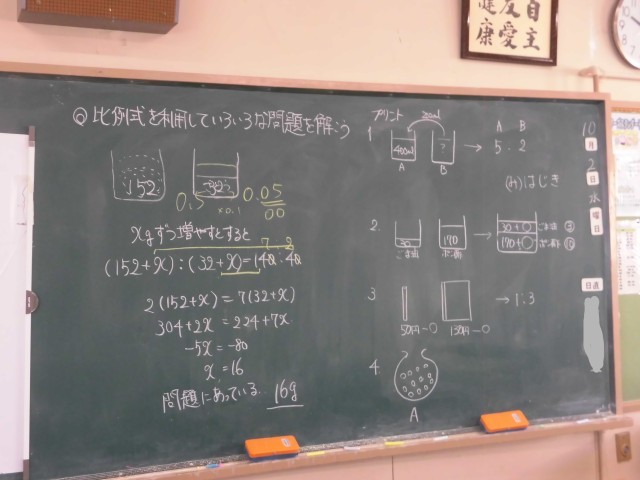 自主
友愛
健康
Q 比例式を利用していろいろな問題を解こう
152
32
0.5
×0.1
0.05
00
xgずつ増やすとすると
7 2
(152+x):(32+x)=140:40
2(152+x)=7(32+x)
304+2x=224+7x
-5x=-80
x=16
問題にあっている. 16g
プリント
1
400ml
?
A
B
A B
→ 5:2
(み)はじき
2.
30
ごま油
170
ポン酢
→
30+○
ごま油
170+○
ポン酢
3
50円-○
130円-○
→1:3
4.
A
10
月
2
日
水
曜
日
日直